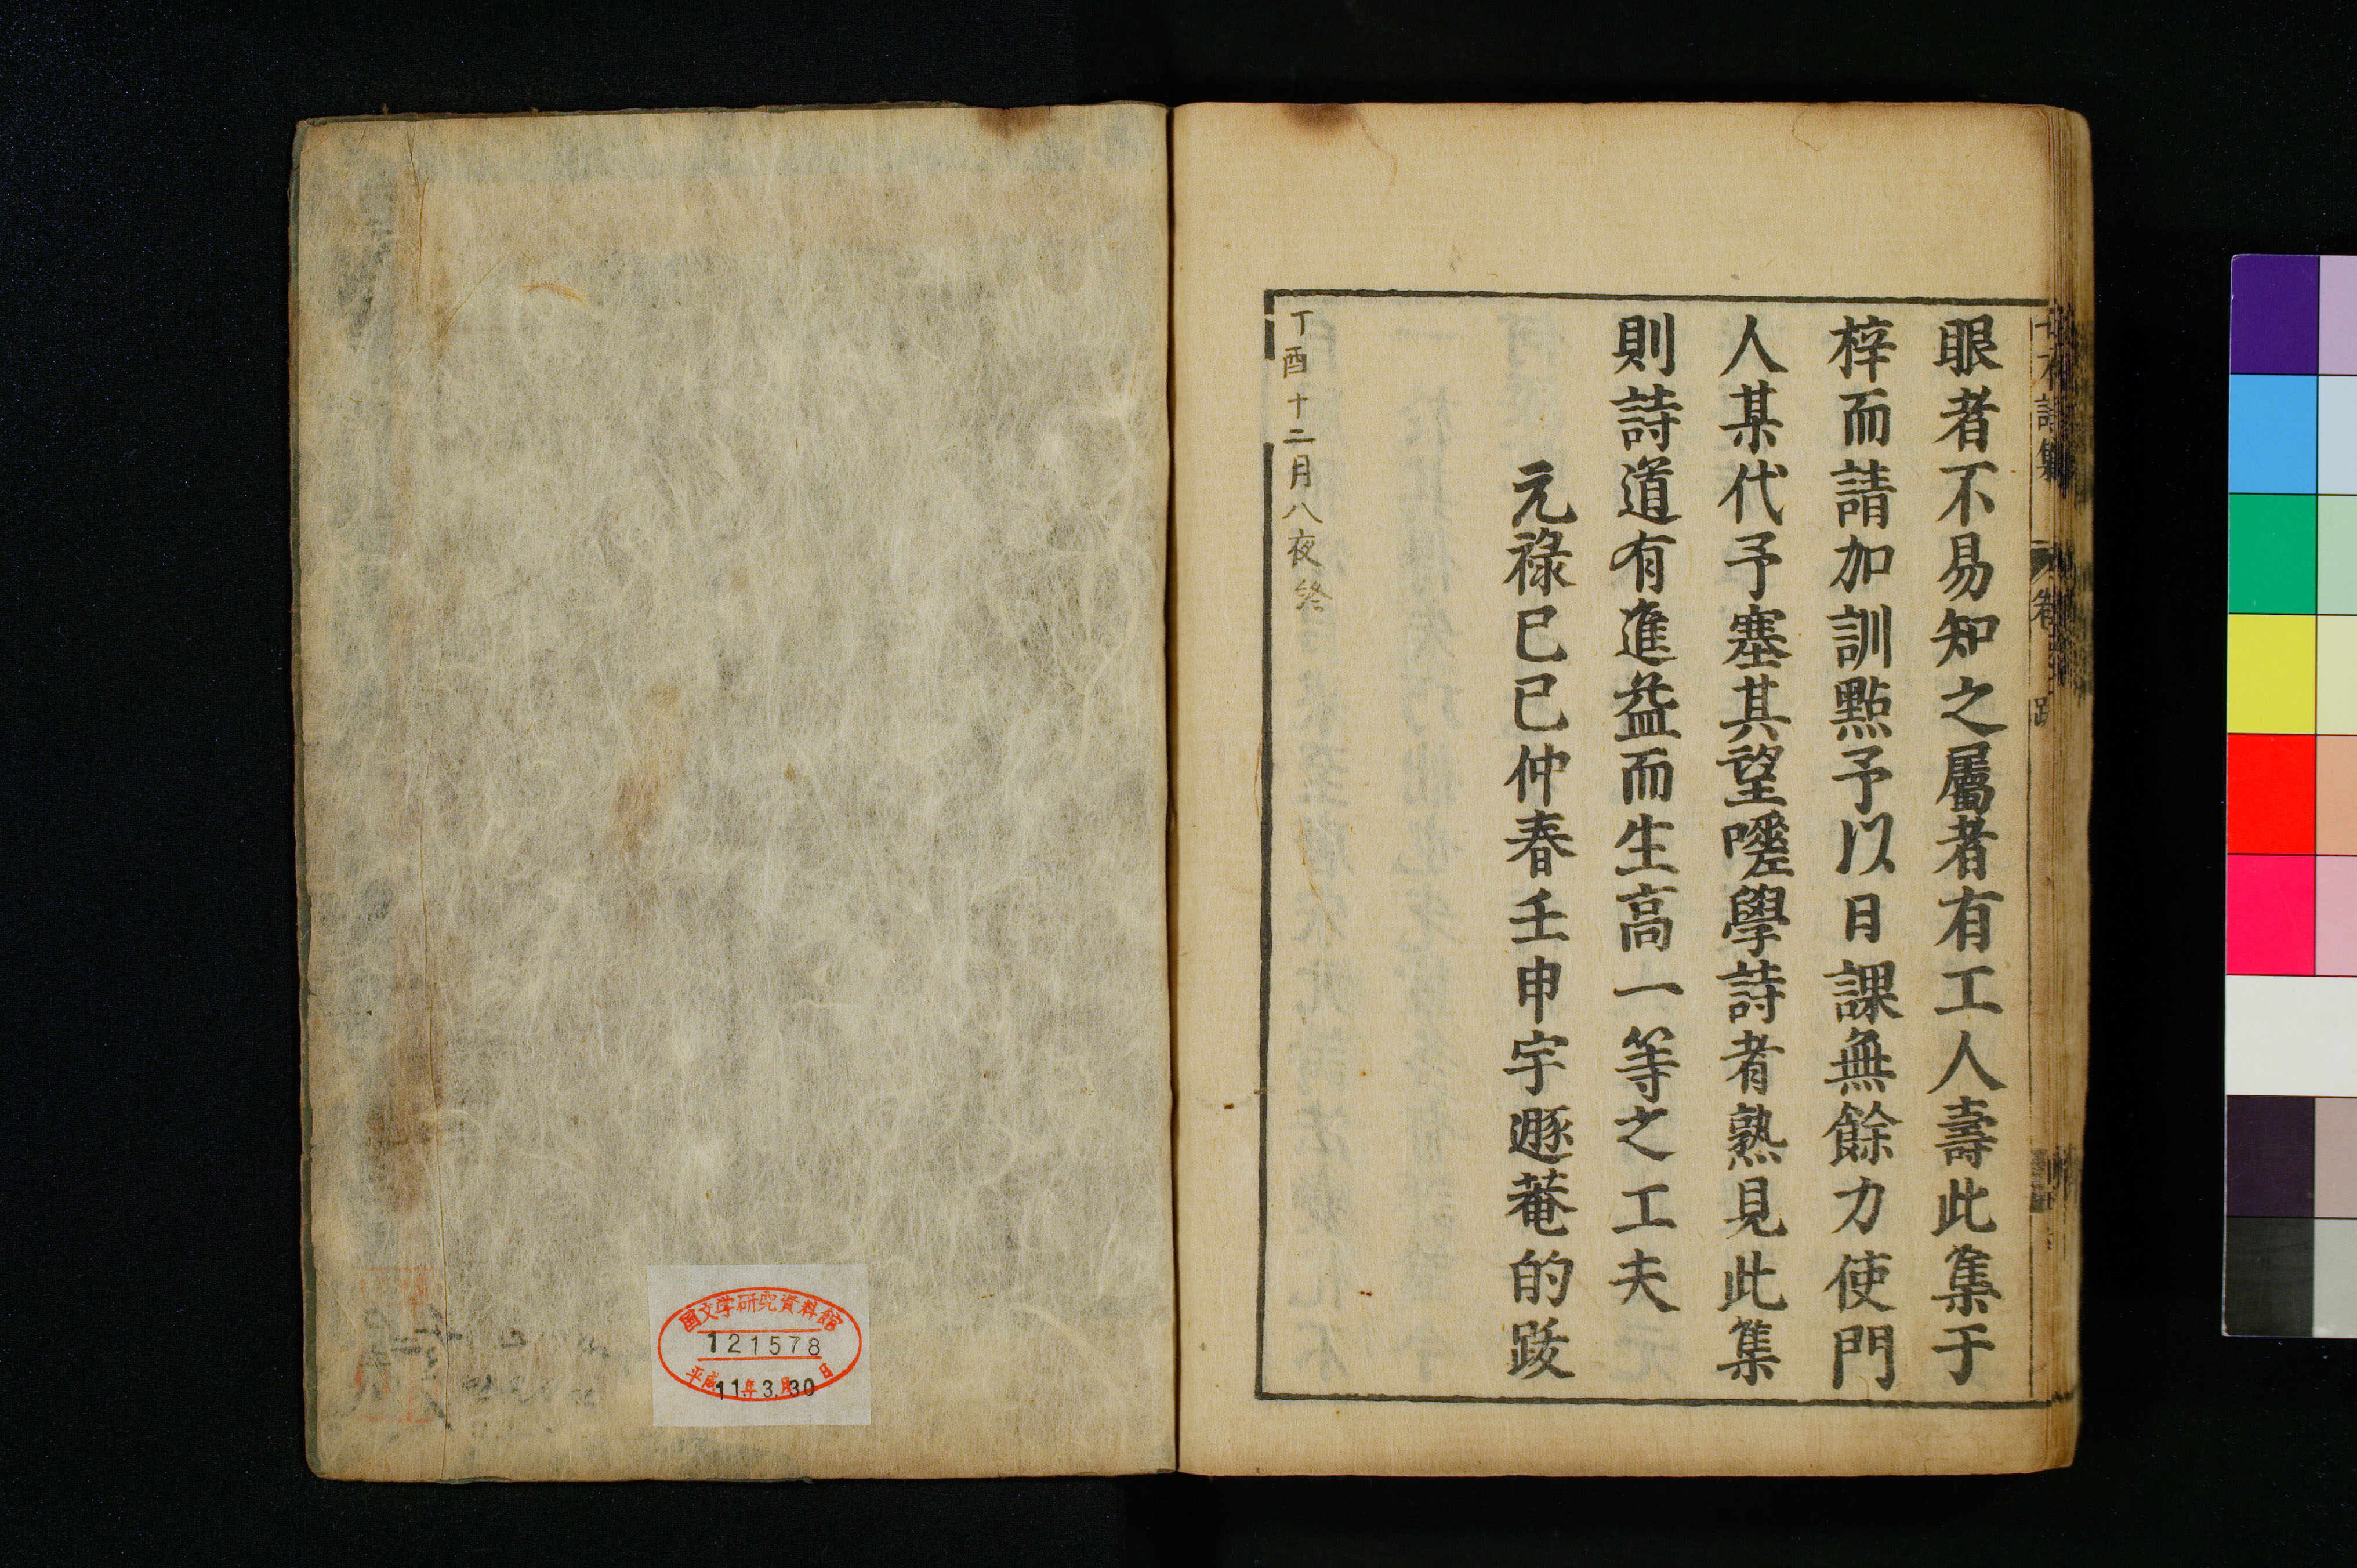 眼者不易知之屬者有工人壽此集于
梓而請加訓點予以日課無餘力使門
人某代予塞其望嗟學詩者熟見此集
則詩道有進益而生高一等之工夫
元祿己巳仲春壬申宇遯菴的跋
丁酉十二月八夜終
国文学研究資料館
121578
平成11年3月30日